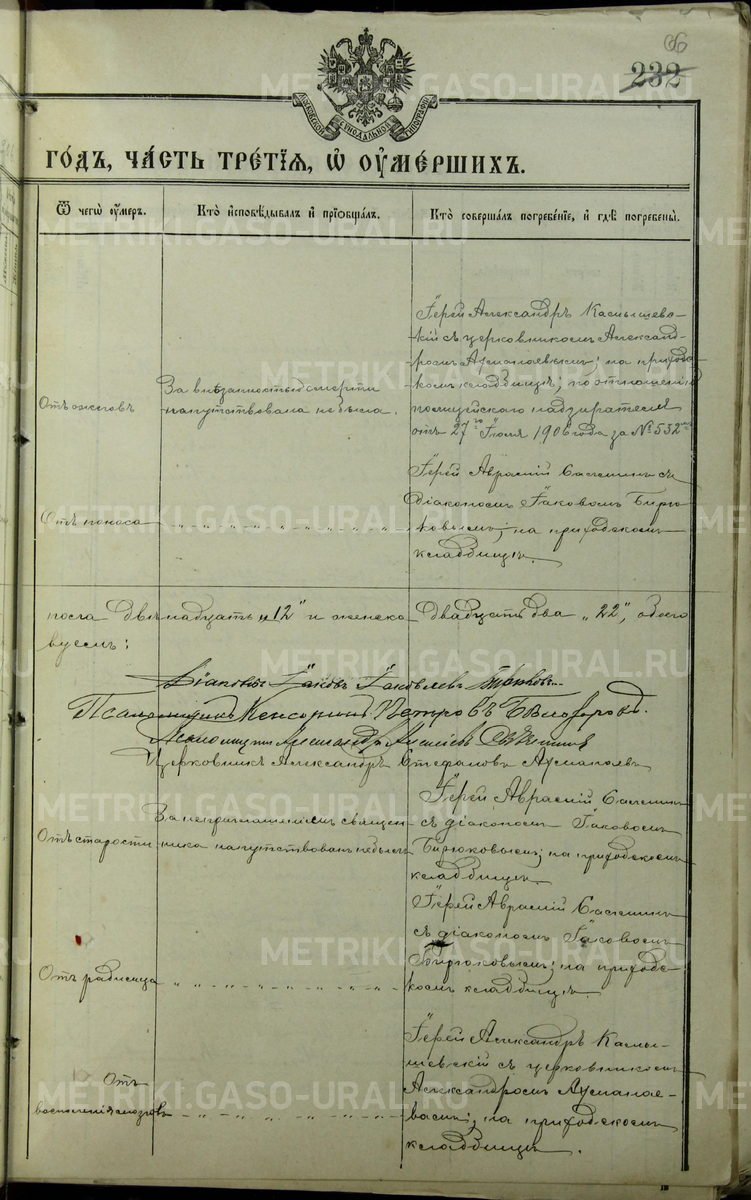 66
232
МОСКОВСКОЙ СУНОДАЛЬНОЙ ТИПОГРАФІИ
METRIKI.GASO-URAL.RU
ГОДЪ, ЧАСТЬ ТРЕТІЯ, Ѡ ОУМЕРШИХЪ.
Ѿ чегѡ оумеръ.
Кто исповѣдывалъ и пріобщалъ.
Кто совершалъ погребеніе, и гдѣ погребены.
Отъ ожоговъ
За внѣзапностью смерти
напутствована не была.
Іерей Александръ Камышев-
кій съ церковникомъ Александ-
ромъ Асманаевымъ; на приход-
скомъ кладбищѣ; по отношенію
полицейскаго надзирателя
отъ 27го Іюля 1906 года за № 532
Отъ поноса
Іерей Аврамій Салмин съ
діакономъ Іаковомъ Бирю-
ковымъ; на приходскомъ
кладбищѣ.
пола двѣнадцать „12" и женска двадцать два „22", обоего
вуемъ:
Діаконъ Іаковъ Іаковлевъ Бирюковъ
Псаломщикъ Кенсоринъ Петровъ Бѣлобородо
Псаломщикъ Александръ
Церковникъ Александръ Стефановъ Асманаевъ
Отъ старости
За неприглашеніемъ священ-
ника напутствованъ не былъ
Іерей Аврамій Салмин
съ діакономъ Іаковомъ
Бирюковымъ; на приходскомъ
кладбищѣ.
Отъ родимца
Іерей Аврамій Салмин
съ діакономъ Іаковомъ
Бирюковымъ; на приход-
скомъ кладбищѣ.
Отъ
воспаленія мозговъ
Іерей Александръ Камы-
шевскій съ церковникомъ
Александромъ Асманае-
вымъ; на приходскомъ
кладбищѣ.